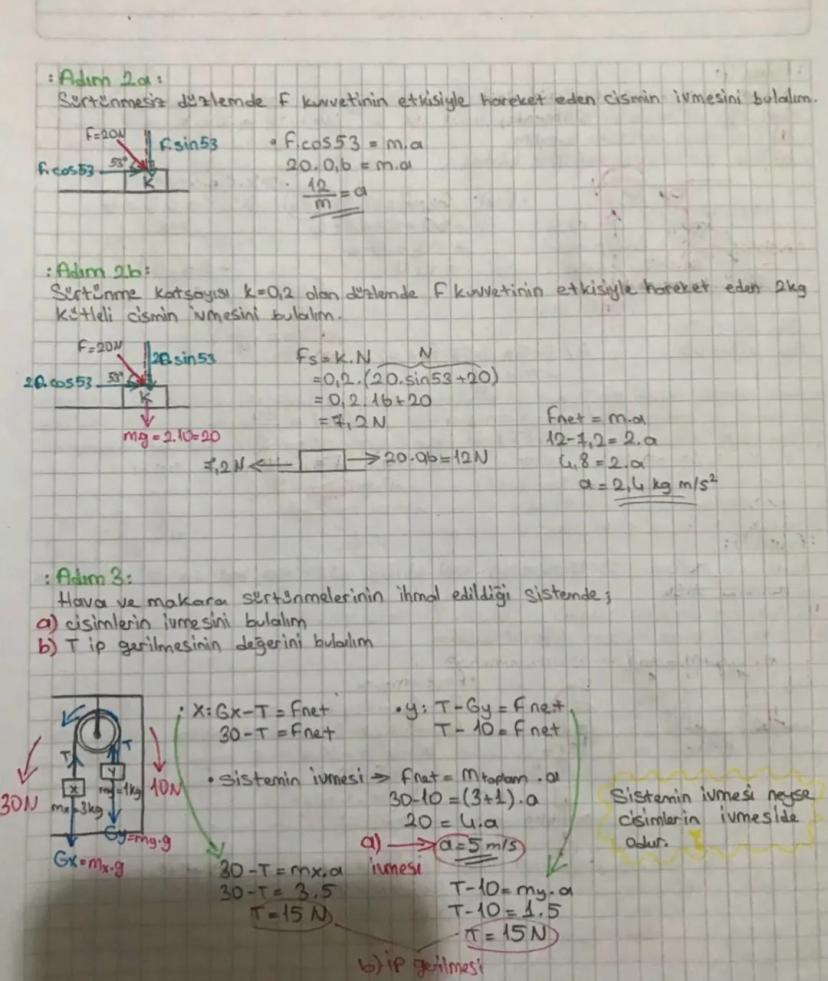 : Adım 2a:
Sürtünmesiz düzlemde F kuvvetinin etkisiyle hareket eden cismin ivmesini bulalım.
F=20N
F.sin53
F.cos53
53°
K
• F.cos53 = m.a
20.0,6 = m.a
12/m = a
: Adım 2b:
Sürtünme katsayısı k=0,2 olan düzlemde F kuvvetinin etkisiyle hareket eden 2kg
kütleli cismin ivmesini bulalım.
F=20N
20.sin53
20.cos53
53°
K
mg = 2.10=20
Fs = k.N
N
=0,2.(20.sin53+20)
= 0,2.16+20
= 7,2N
7,2N
20.0,6=12N
Fnet = m.a
12-7,2=2.a
4,8=2.a
a=2,4 kg m/s²
: Adım 3:
Hava ve makara sürtünmelerinin ihmal edildiği sistemde;
a) cisimlerin ivmesini bulalım
b) T ip gerilmesinin değerini bulalım
T
T
X
Y
30N
10N
mx=3kg
my=1kg
Gy=my.g
Gx=mx.g
• X: Gx-T = Fnet
30-T = Fnet
• y: T-Gy = Fnet
T-10 = Fnet
• Sistemin ivmesi → Fnet = mtoplam.a
30-10 = (3+1).a
20 = 4.a
a) → a=5 m/s
ivmesi
Sistemin ivmesi neyse
cisimlerin ivmeside
odur.
30-T = mx.a
30-T = 3.5
T=15N
T-10 = my.a
T-10 = 1.5
T=15N
b) ip gerilmesi